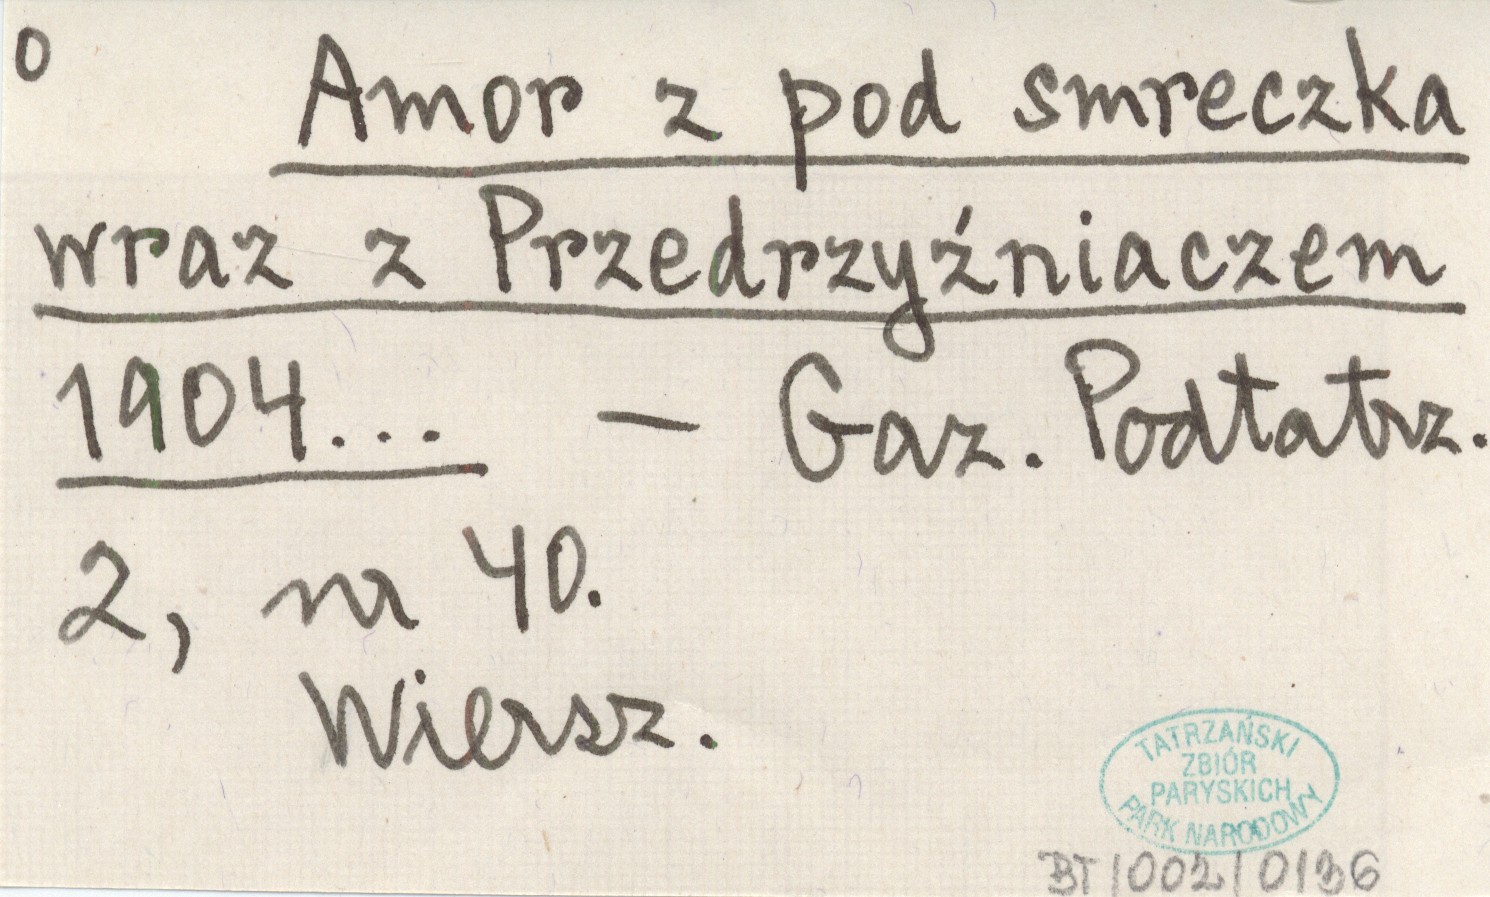 0
Amor z pod smreczka
wraz z Przedrzyźniaczem
1904... — Gaz. Podtatrz.
2, nr 40.
Wiersz.
TATRZAŃSKI
ZBIÓR
PARYSKICH
PARK NARODOWY
BT/002/0136